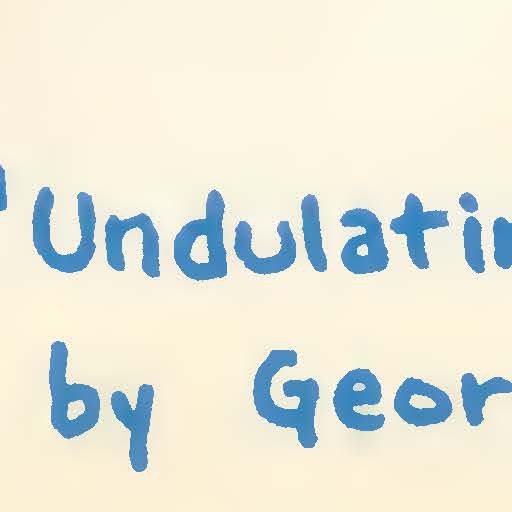 "Undulatin
by Geor